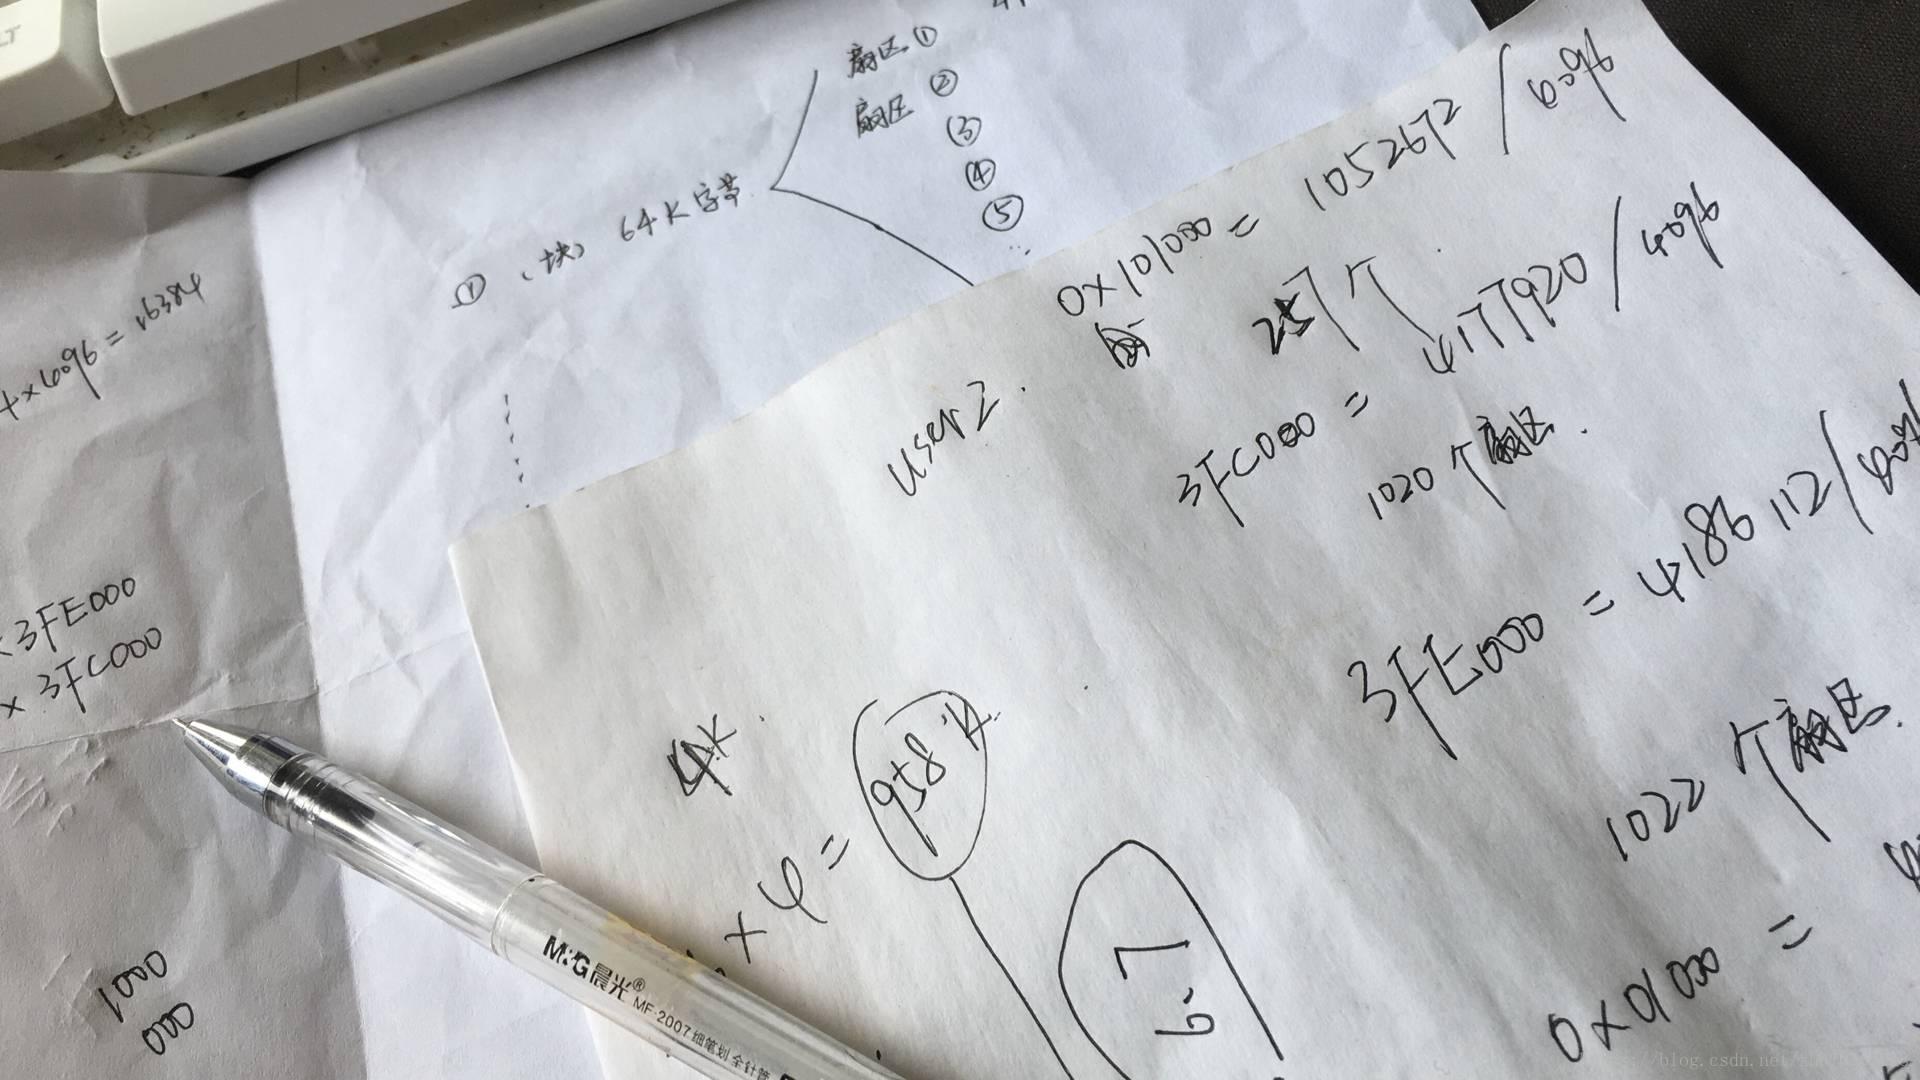 LT
扇区①
扇区 ②
③
④
⑤
① (块) 64K字节
4096 = 16384
3FE000
x 3FC000
1000
000
0x101000 = 1052672 / 4096
257个
user2.
3FC000 = 4177920 / 4096
1020个扇区.
3FE000 = 4186112 / 4096
1022个扇区.
4K.
x 4 = 958K.
0x01000 =
M&G晨光®
MF-2007 细笔划 全针管